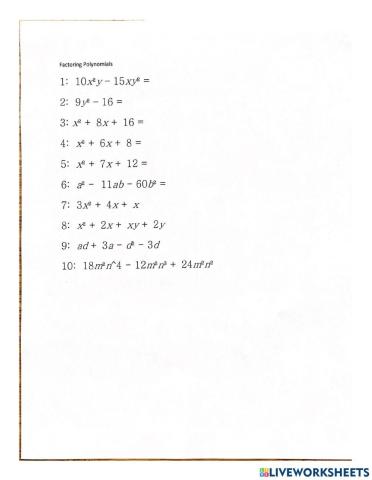 Factoring Polynomials
1: 10x²y − 15xy² =
2: 9y² − 16 =
3: x² + 8x + 16 =
4: x² + 6x + 8 =
5: x² + 7x + 12 =
6: a² − 11ab − 60b² =
7: 3x² + 4x + x
8: x² + 2x + xy + 2y
9: ad + 3a − d² − 3d
10: 18m²n^4 − 12m²n³ + 24m²n²
LIVEWORKSHEETS